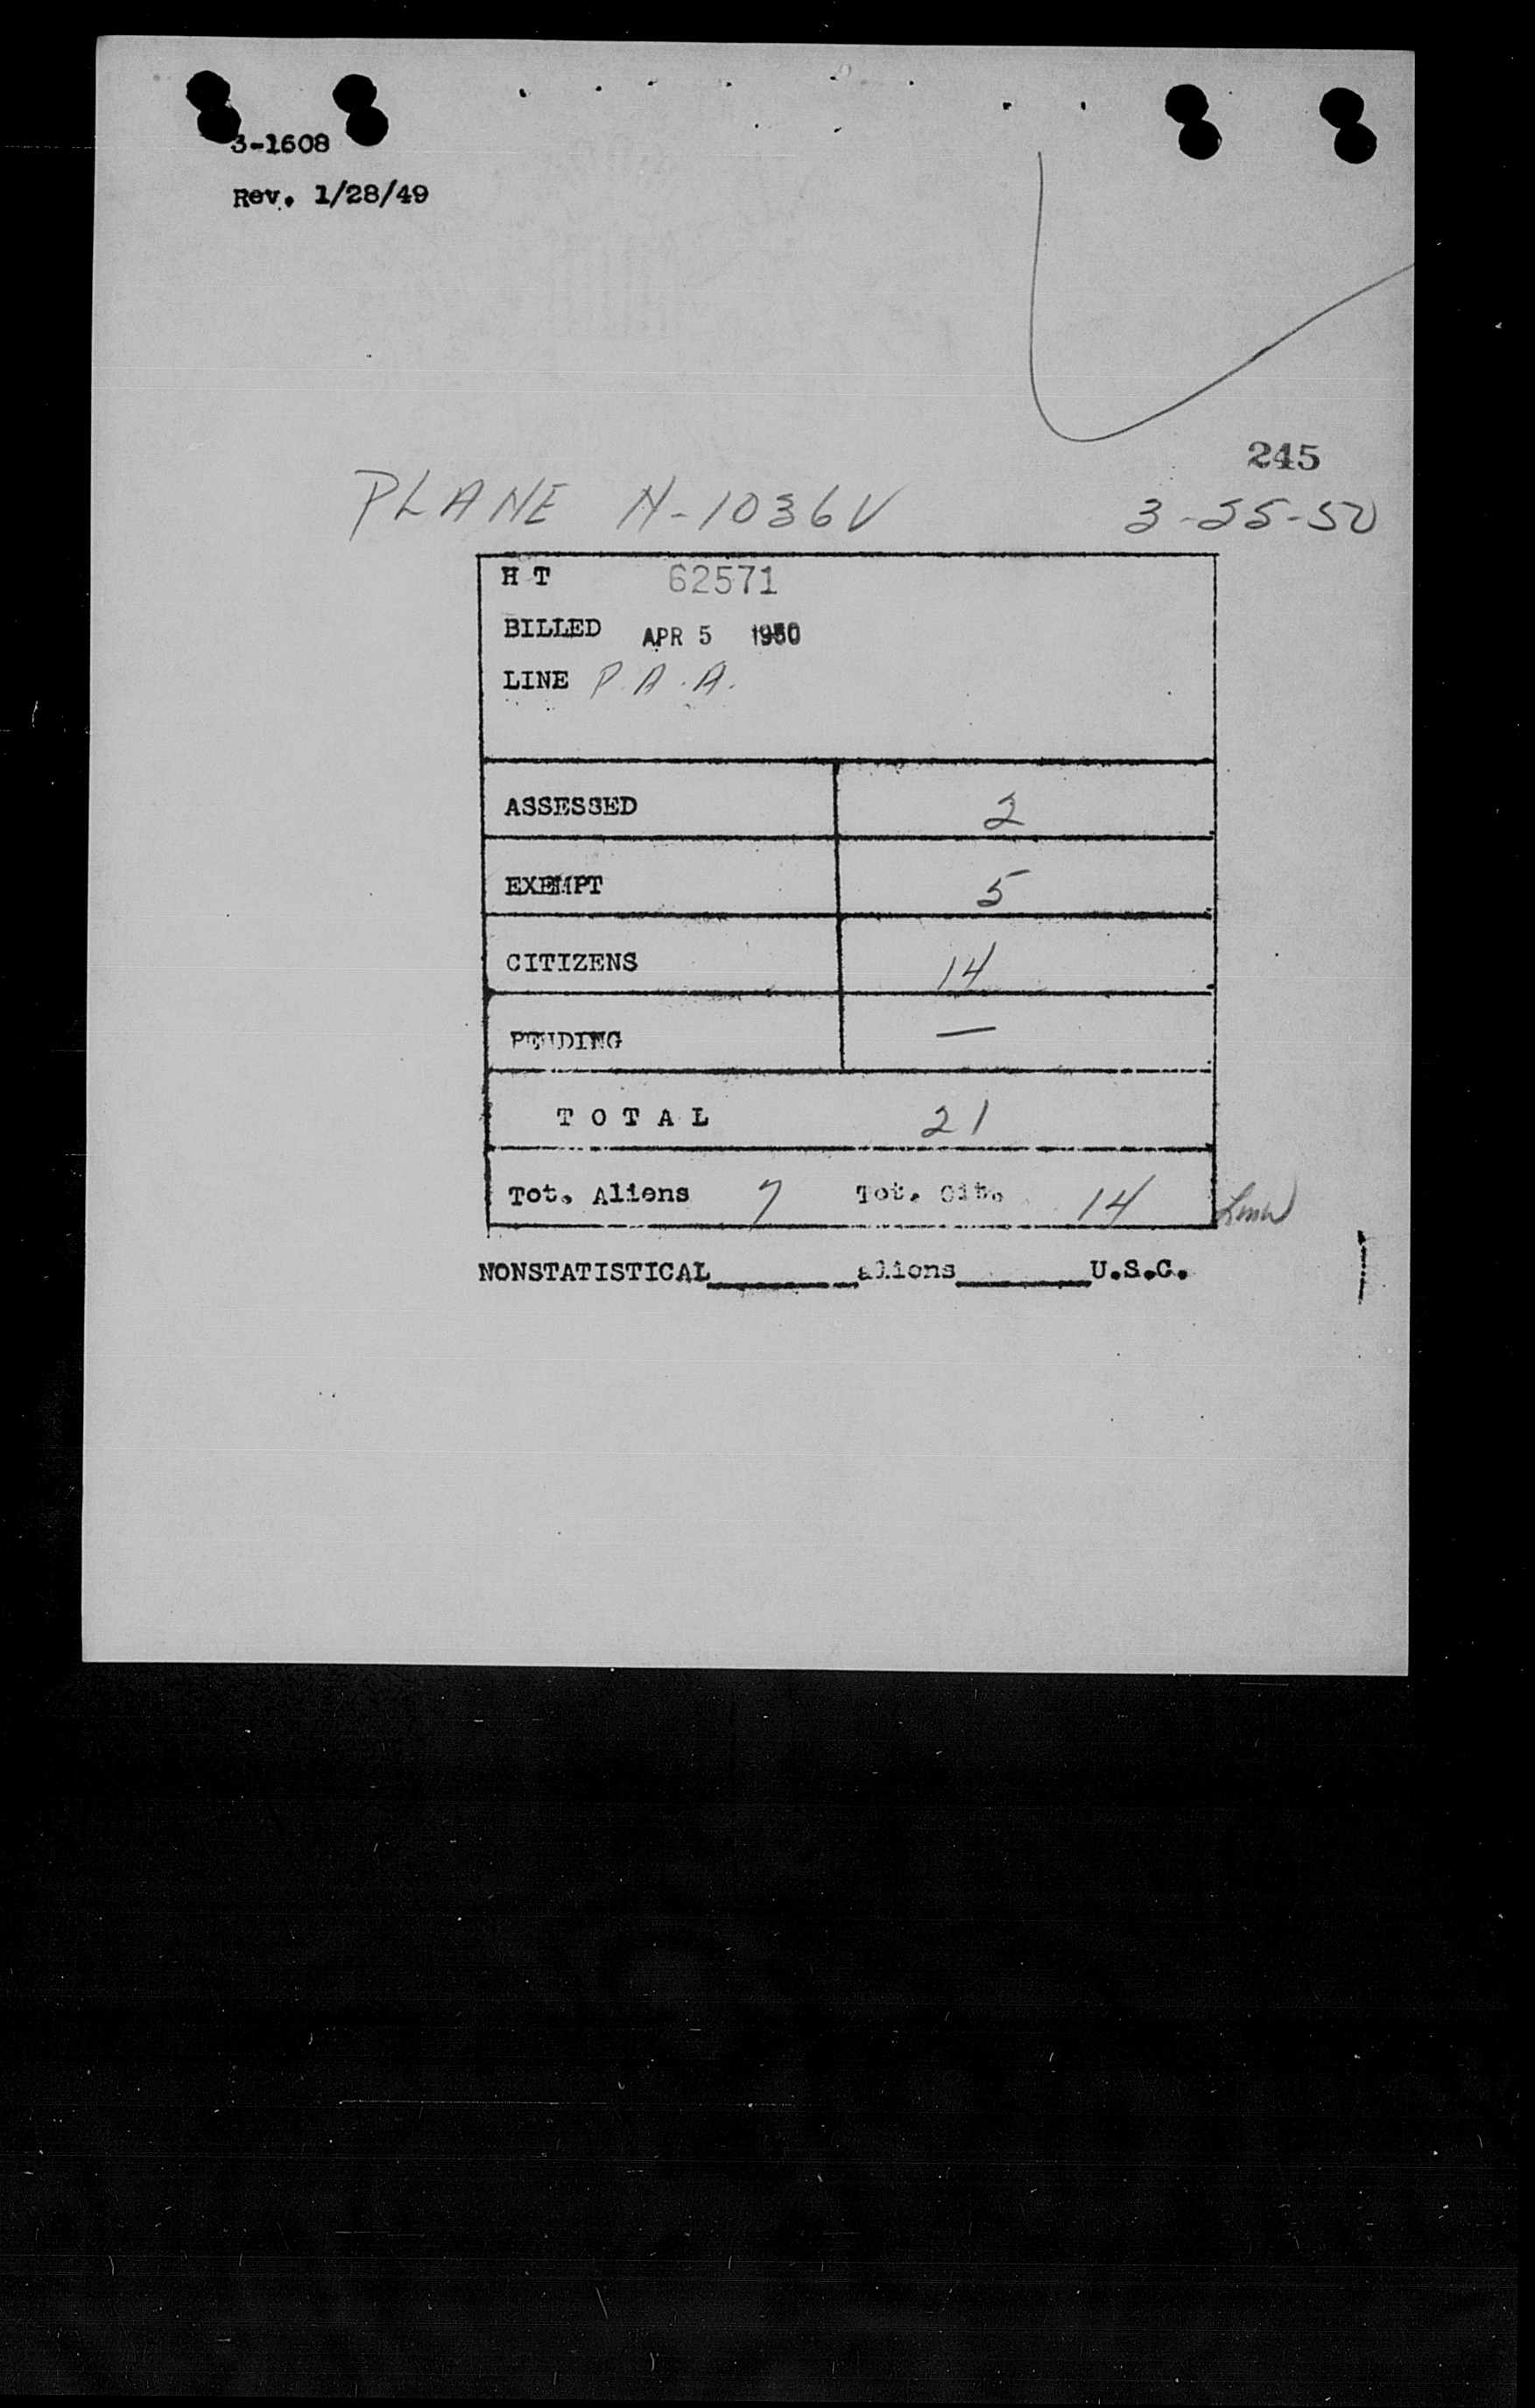 3-1608
Rev. 1/28/49
245
PLANE N-1036V 3-25-50
H T 62571
BILLED APR 5 1950
LINE P.A.A.
ASSESSED 2
EXEMPT 5
CITIZENS 14
PENDING —
T O T A L 21
Tot. Aliens 7 Tot. Cit. 14
NONSTATISTICAL________aliens________U.S.C.